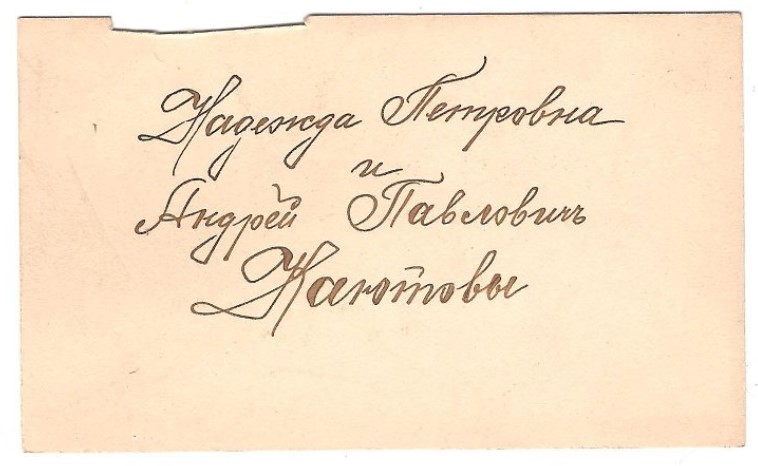 Надежда Петровна
и
Андрей Павловичъ
Каютовы